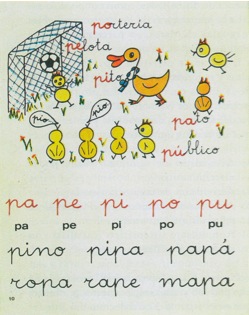 portería
pelota
pito
pío
pío
pato
público
pa pe pi po pu
pa pe pi po pu
pino pipa papá
ropa rape mapa
10